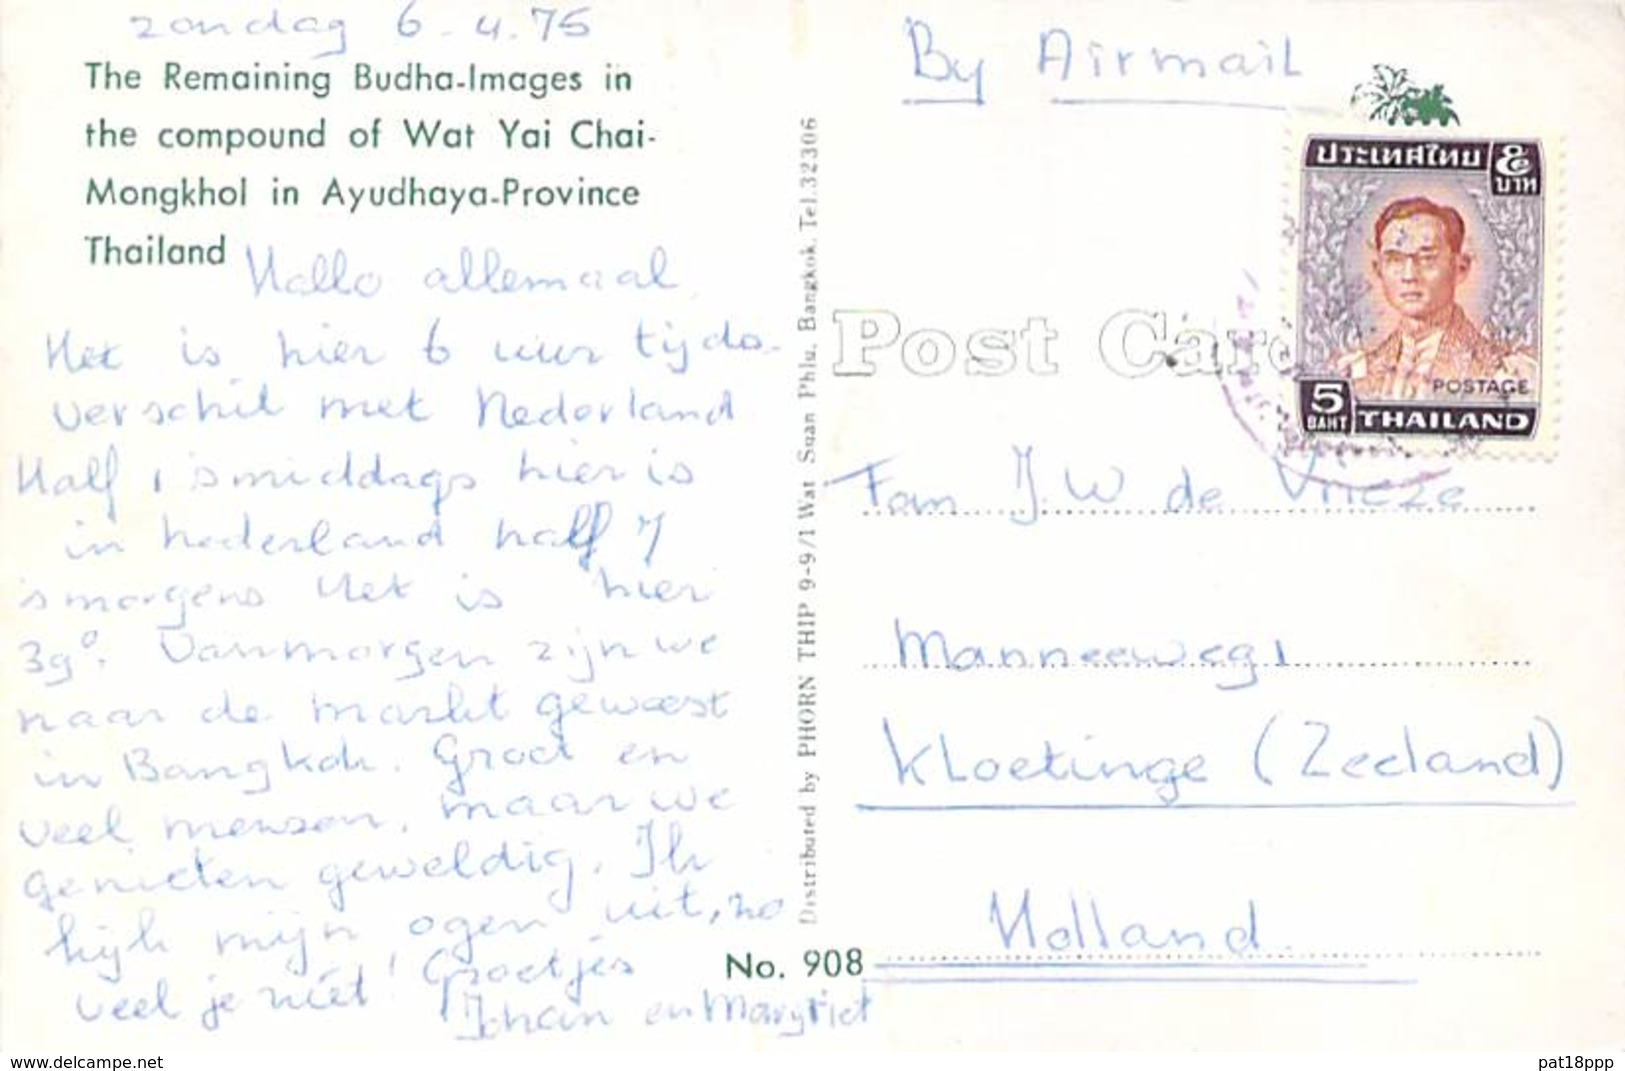 zondag 6-4.75
The Remaining Budha-Images in
the compound of Wat Yai Chai-
Mongkhol in Ayudhaya-Province
Thailand
Hallo allemaal
Het is hier 6 uur tijds-
verschil met Nederland
Half 1 's middags hier is
in nederland half 7
's morgens Het is hier
39°. Vanmorgen zijn we
naar de markt geweest
in Bangkok. Groot en
veel mensen, maar we
genieten geweldig. Ik
kijk mijn ogen uit, zo
veel je niet! Groetjes
Johan en Maryriet
Distributed by PHORN THIP 9-9/1 Wat Suan Phlu, Bangkok. Tel.32306
No. 908
By Airmail
ประเทศไทย ๕ บาท
POSTAGE
5 BAHT THAILAND
Post Card
Fam J.W de Vrieze
Manneeweg 1
Kloetinge (Zeeland)
Holland.
www.delcampe.net
pat18ppp